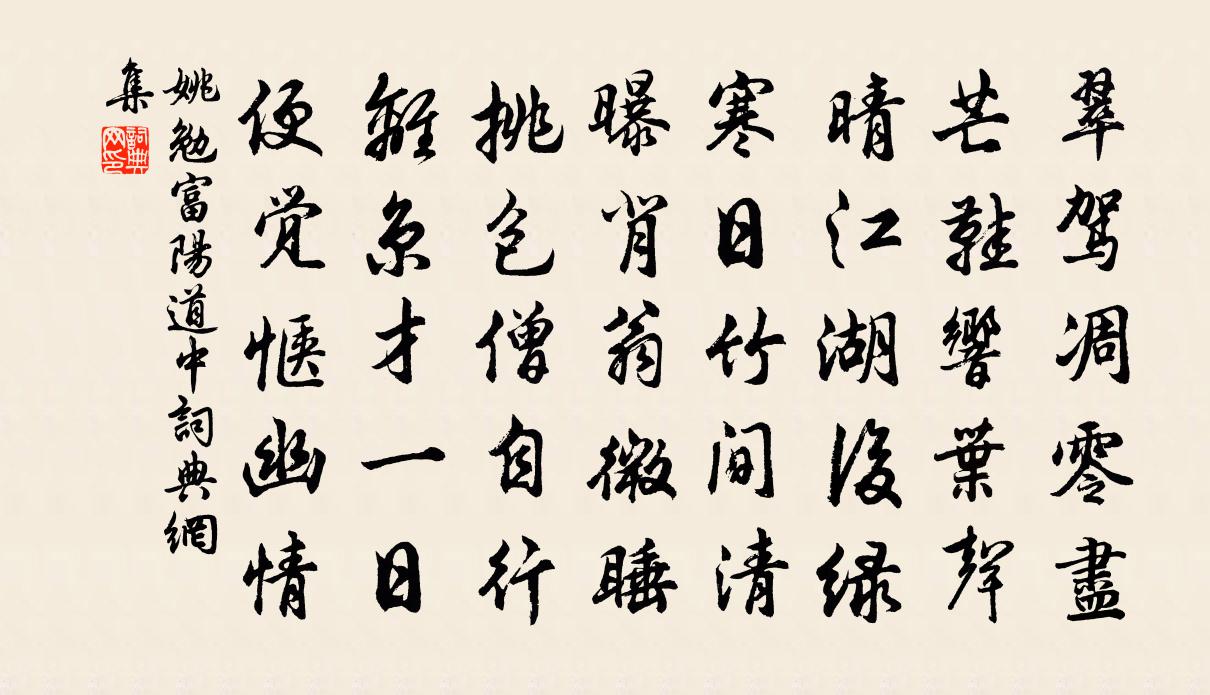 翠驾凋零盡
芒鞋響葉聲
晴江湖後緑
寒日竹间清
曝背翁微睡
挑包僧自行
離京才一日
便觉愜幽情
姚勉富陽道中詞典網
集
詞典网印